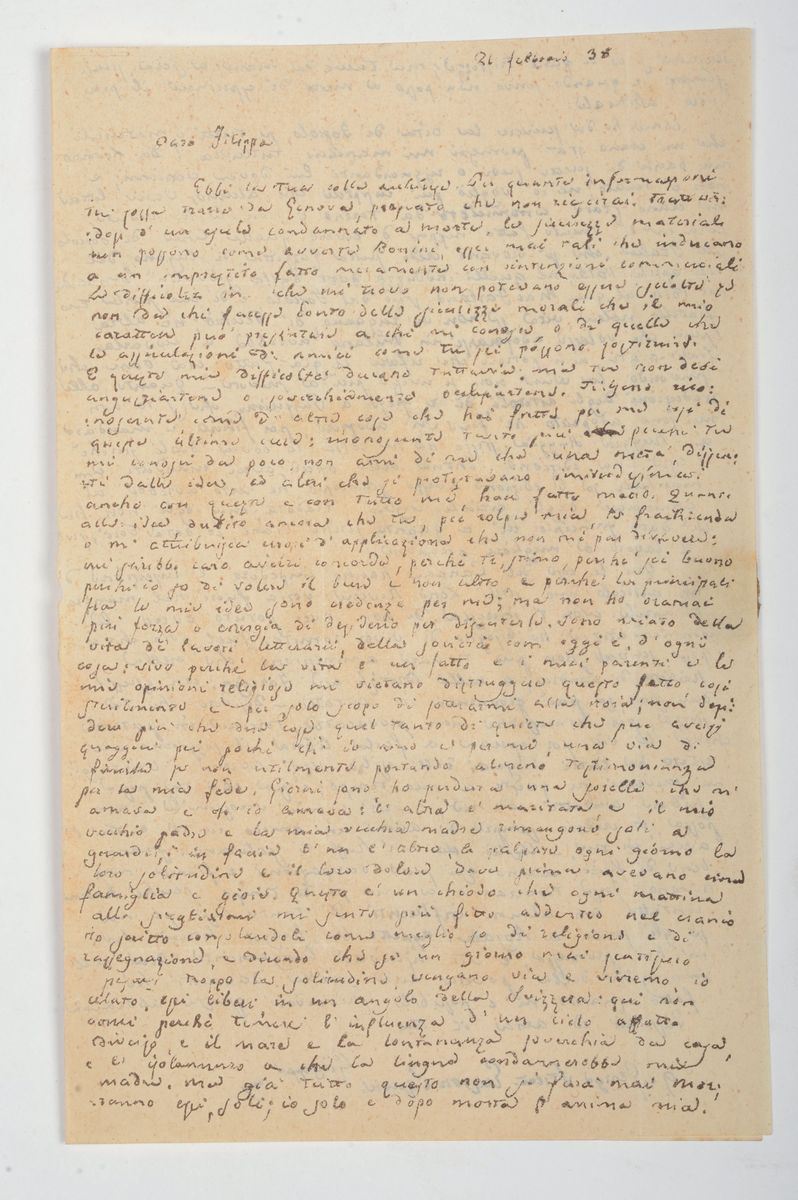 21 febbraio 38
Caro Filippo
Ebbi la tua colle Per quante informazioni
tu possa trarre da Genova, che non riescirai. Tratta
d'un esule condannato a morte. le sicurezze materiali
non possono come avverte Bonini, esser mai tali che inducano
a un imprestito fatto meramente con intenzioni commerciali
Le difficoltà in che mi trovo non potevano essere sciolte se
non da chi facesse conto delle sicurezze morali che il mio
carattere può presentare a chi mi conosce o di quelle che
le assicurazioni di amici come tu sei possono sostituirvi.
E queste mie difficoltà durano tuttavia: ma tu non devi
angustiartene o soverchiamente occupartene. Ti sono rico:
noscente come d'altre cose che hai fatto per me così di
queste ultime cure: riconoscente tanto più perché tu
mi conosci da poco, non ami di me che una metà, dissen:
ti dalle idee, ed altri che si protestavano
anche con queste e con tutto me, han fatto meno. Quanto
alle idee dubito ancora che tu, per colpa mia, le frantenda
o m'attribuisca errori d'applicazione che non mi par d'avere:
mi sarebbe caro averti concorde, perché ti stimo, perché sei buono
perché io so di volere il bene e non altro, e perché le principali
fra le mie idee sono credenze per me; ma non ho oramai
più forza o energia di desiderio per discuterle. Sono noiato della
vita di lavori letterari, della società com'oggi è, d'ogni
cosa: vivo perché la vita è un fatto e i miei parenti e le
mie opinioni religiose mi vietano distruggere questo fatto così
sterilmente e per solo scopo di sottrarmi alla noia; non desi:
dero più che due cose quel tanto di quiete che può aversi
quaggiù pei pochi ch'io amo e per me, una via di
finirla se non utilmente portando almeno testimonianza
per la mia fede. Giorni sono ho perduta una sorella che m'
amava e ch'io amava: l'altra è maritata, e il mio
vecchio padre e la mia vecchia madre rimangono soli a
guardarsi in faccia l'un l'altro, a palpare ogni giorno la
loro solitudine e il loro dolore dove prima avevano una
famiglia e gioie. Questo è un chiodo che ogni mattina
allo svegliarmi mi sento più fitto addentro nel cranio
Ho scritto consolandoli come meglio so di religione e di
rassegnazione, e dicendo che se un giorno mai sentissero
troppo la solitudine, vengano via e vivremo io
celato, essi liberi in un angolo della Svizzera: qui non
perché temerei l'influenza d'un cielo affatto
diverso, e il mare e la lontananza soverchia da casa,
e l'isolamento a che la lingua condannerebbe mia
madre. ma già tutto questo non si farà mai mor:
ranno essi, soli; io solo e dopo morta l'anima mia.